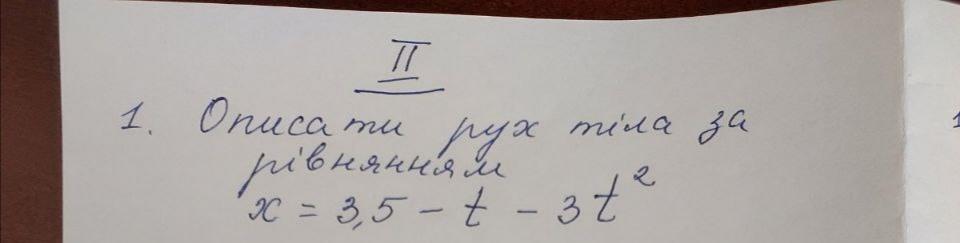 II
1. Описати рух тіла за
рівнянням
x = 3,5 - t - 3t²